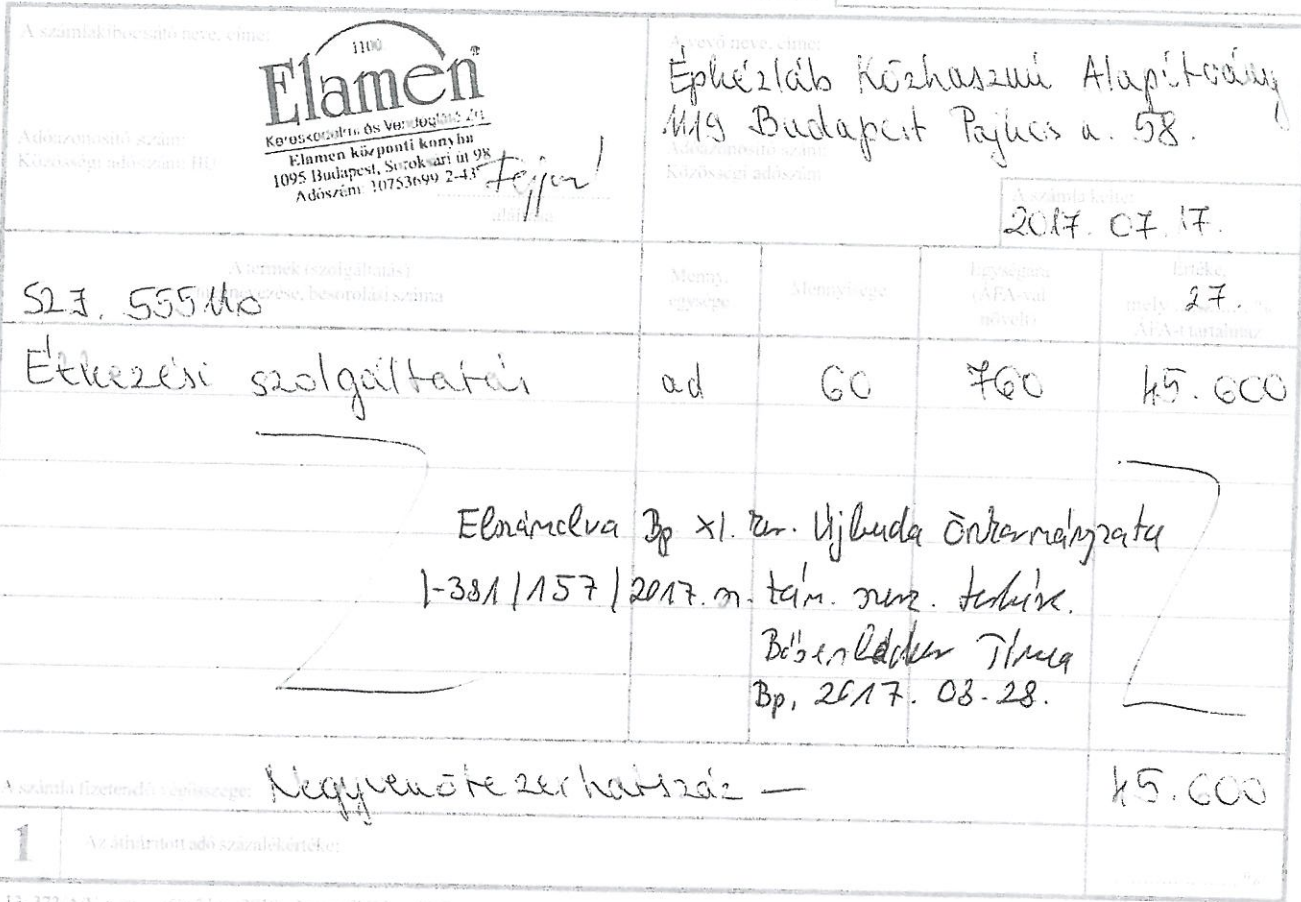 A számlakibocsátó neve, címe:
1100
Elamen®
Kereskedelmi és Vendéglátó Zrt
Elamen központi konyha
1095 Budapest, Soroksári út 98
Adószám: 10753699-2-43
Adóazonosító szám:
Közösségi adószám: HU
aláírás
A vevő neve, címe:
Épkézláb Közhasznú Alapítvány
1119 Budapest Pajkos u. 58.
Adóazonosító szám:
Közösségi adószám:
A számla kelte:
2017. 07. 17.
A termék (szolgáltatás)
megnevezése, besorolási száma
SZJ. 55510
Menny. egysége
Mennyisége
Egységára (ÁFA-val növelt)
Értéke, mely 27. % ÁFA-t tartalmaz
Étkezési szolgáltatás ad 60 760 45.600
Elszámolva Bp XI. ker. Újbuda Önkormányzata
I-381/157/2017. sz. tám. szerz. terhére.
Tímea
Bp, 2017. 08. 28.
A számla fizetendő végösszege: Negyvenötezerhatszáz — 45.600
1 Az áthárított adó százalékértéke: %